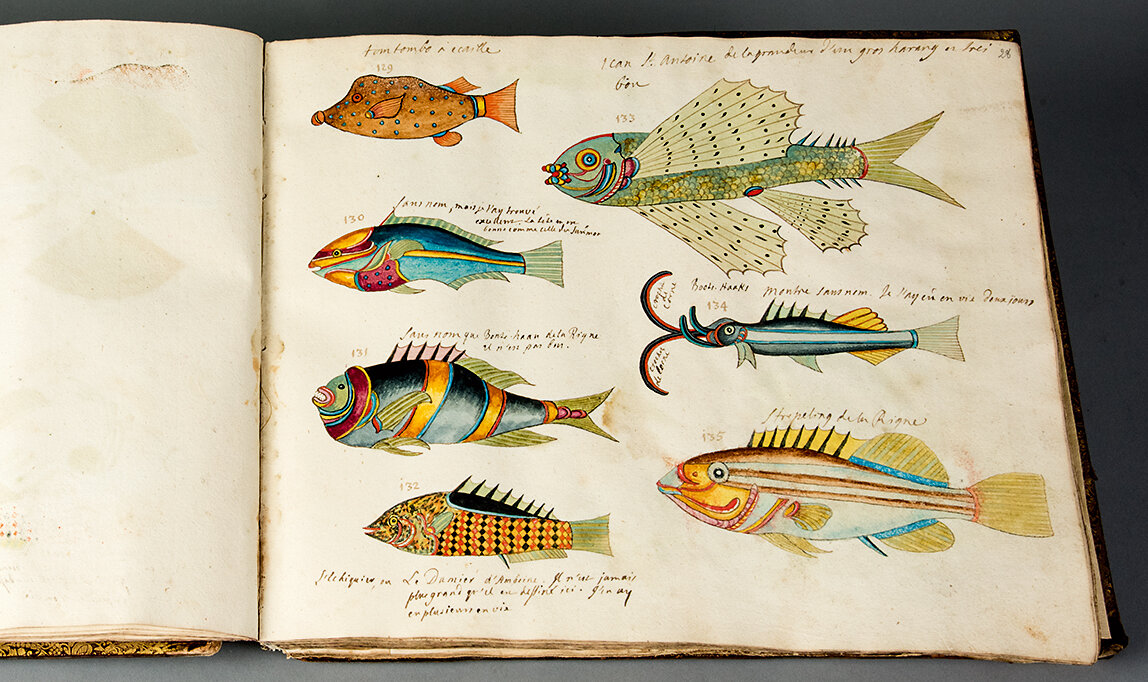 tomtombo a ecaille
129
Ican St. Antoine de la grandeur d'un gros harang et tres
bon
28
133
130
sans nom, mais je l'ay trouvé
excellent. La tete en est
bonne comme celle du Saumon
Boots-Haaks montre sans nom. Je l'ay eu en vie deux jours
134
corne
de corne
131
sans nom que Boots-haak de la Rigne
il n'est pas bon.
Strepeling de la Rigne
135
132
l'Echiquier, ou Le Damier d'Amboine. Il n'est jamais
plus grand qu'il est dessiné ici. J'en ay
eu plusieurs en vie